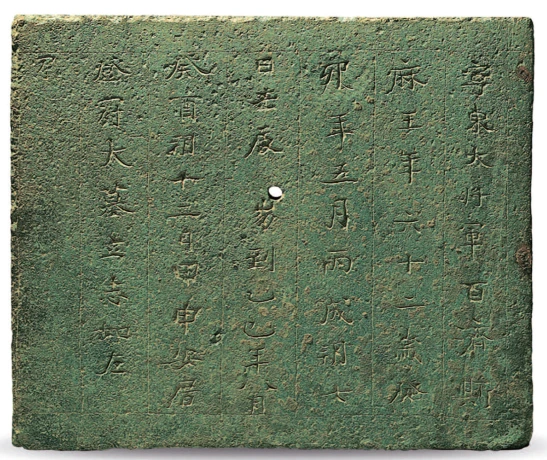 寧東大將軍百濟斯
麻王年六十二歲癸
卯年五月丙戌朔七
日壬辰崩到乙巳年八月
癸酉朔十二日甲申安厝
登冠大墓立志如左
印